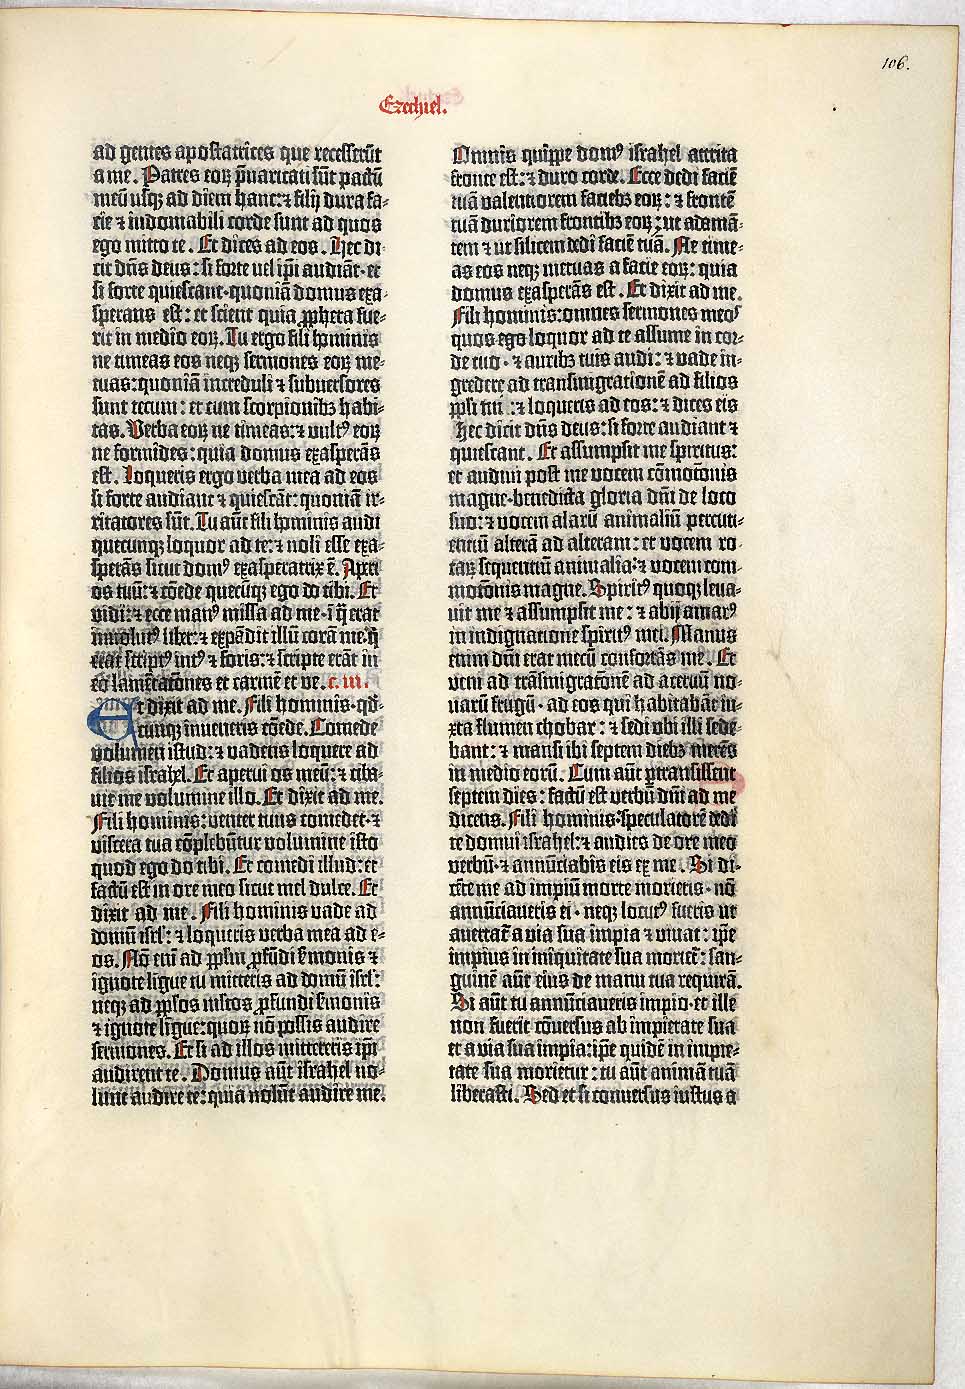 106.
Ezechiel.
ad gentes apostatrices que recesserūt
a me. Patres eoꝝ p̄uaricati sūt pactū
meū usqꝫ ad diem hanc: ⁊ filij dura fa⸗
cie ⁊ indomabili corde sunt ad quos
ego mitto te. Et dices ad eos. Hec di⸗
cit dn̄s deus: si forte uel ip̄i audiāt· et
si forte quiescant· quoniā domus exa⸗
sperans est: et scient quia ꝓpheta fue⸗
rit in medio eoꝝ. Tu ergo fili hominis
ne timeas eos neqꝫ sermones eoꝝ me⸗
tuas: quoniā increduli ⁊ subuersores
sunt tecum: et cum scorpionibꝫ habi⸗
tas. Verba eoꝝ ne timeas: ⁊ vultꝰ eoꝝ
ne formides: quia domus exasperās
est. Loqueris ergo verba mea ad eos
si forte audiant ⁊ quiescāt: quoniā ir⸗
ritatores sūt. Tu aūt fili hominis audi
quecunqꝫ loquor ad te: ⁊ noli esse exa⸗
sperās sicut domꝰ exasperatrix ē. Aperi
os tuū: ⁊ cōede quecūqꝫ ego do tibi. Et
vidi: ⁊ ecce manꝰ missa ad me· ī q̄ erat
inuolutꝰ liber: ⁊ expādit illū corā me: q̄
erat scriptꝰ intꝰ ⁊ foris: ⁊ scripte erāt in
eo lamētatōnes et carmē et ve. c. iii.
Et dixit ad me. Fili hominis· qd̄⸗
cunqꝫ inueneris cōede. Comede
volumen istud: ⁊ vadens loquere ad
filios israhel. Et aperui os meū: ⁊ ciba⸗
uit me volumine illo. Et dixit ad me.
Fili hominis: venter tuus comedet· ⁊
viscera tua cōplebūtur volumine isto
quod ego do tibi. Et comedi illud: et
factū est in ore meo sicut mel dulce. Et
dixit ad me. Fili hominis vade ad
domū isrl̄: ⁊ loqueris verba mea ad e⸗
os. Nō enī ad ppl̄m ꝓfūdi s̄monis ⁊
ignote līgue tu mitteris ad domū isrl̄:
neqꝫ ad ppl̄os ml̄tos ꝓfundi s̄monis
⁊ ignote līgue: quoꝝ nō possis audire
sermones. Et si ad illos mittereris ip̄i
audirent te. Domus aūt israhel no⸗
lunt audire te: quia nolūt audire me.
Omnis quippe domꝰ israhel attrita
fronte est: ⁊ duro corde. Ecce dedi faciē
tuā valentiorem faciebꝫ eoꝝ: ⁊ frontē
tuā duriorem frontibꝫ eoꝝ: ut adamā⸗
tem ⁊ ut silicem dedi faciē tuā. Ne time⸗
as eos neqꝫ metuas a facie eoꝝ: quia
domus exasperās est. Et dixit ad me.
Fili hominis: omnes sermones meos
quos ego loquor ad te assume in cor⸗
de tuo· ⁊ auribꝫ tuis audi: ⁊ vade in⸗
gredere ad transmigrationē ad filios
ppl̄i tui: ⁊ loqueris ad eos: ⁊ dices eis
Hec dicit dn̄s deus: si forte audiant ⁊
quiescant. Et assumpsit me spiritus:
et audiui post me vocem cōmotōnis
magne· benedicta gloria dn̄i de loco
suo: ⁊ vocem alarū animaliū percuti⸗
entiū alterā ad alteram: et vocem ro⸗
taꝝ sequentiū animalia: ⁊ vocem com⸗
motōnis magne. Spiritꝰ quoqꝫ leua⸗
uit me ⁊ assumpsit me: ⁊ abij amarꝰ
in indignatione spiritꝰ mei. Manus
enim dn̄i erat mecū confortās me. Et
veni ad trāsmigratōnē ad aceruū no⸗
uarū frugū· ad eos qui habitabāt iu⸗
xta flumen chobar: ⁊ sedi vbi illi sede⸗
bant: ⁊ mansi ibi septem diebꝫ merēs
in medio eorū. Cum aūt ꝑtransissent
septem dies: factū est verbū dn̄i ad me
dicens. Fili hominis: speculatorē dedi
te domui israhel: ⁊ audies de ore meo
verbū· ⁊ annūciabis eis ex me. Si di⸗
cēte me ad impiū morte morieris· nō
annūciaueris ei· neqꝫ locutꝰ fueris ut
auertat̄ a via sua impia ⁊ viuat: ip̄e
impius in iniquitate sua moriet̄: san⸗
guinē aūt eius de manu tua requirā.
Si aūt tu annūciaueris impio· et ille
non fuerit cōuersus ab impietate sua
et a via sua impia: ip̄e quidē in impie⸗
tate sua morietur: tu aūt animā tuā
liberasti. Sed et si conuersus iustus a